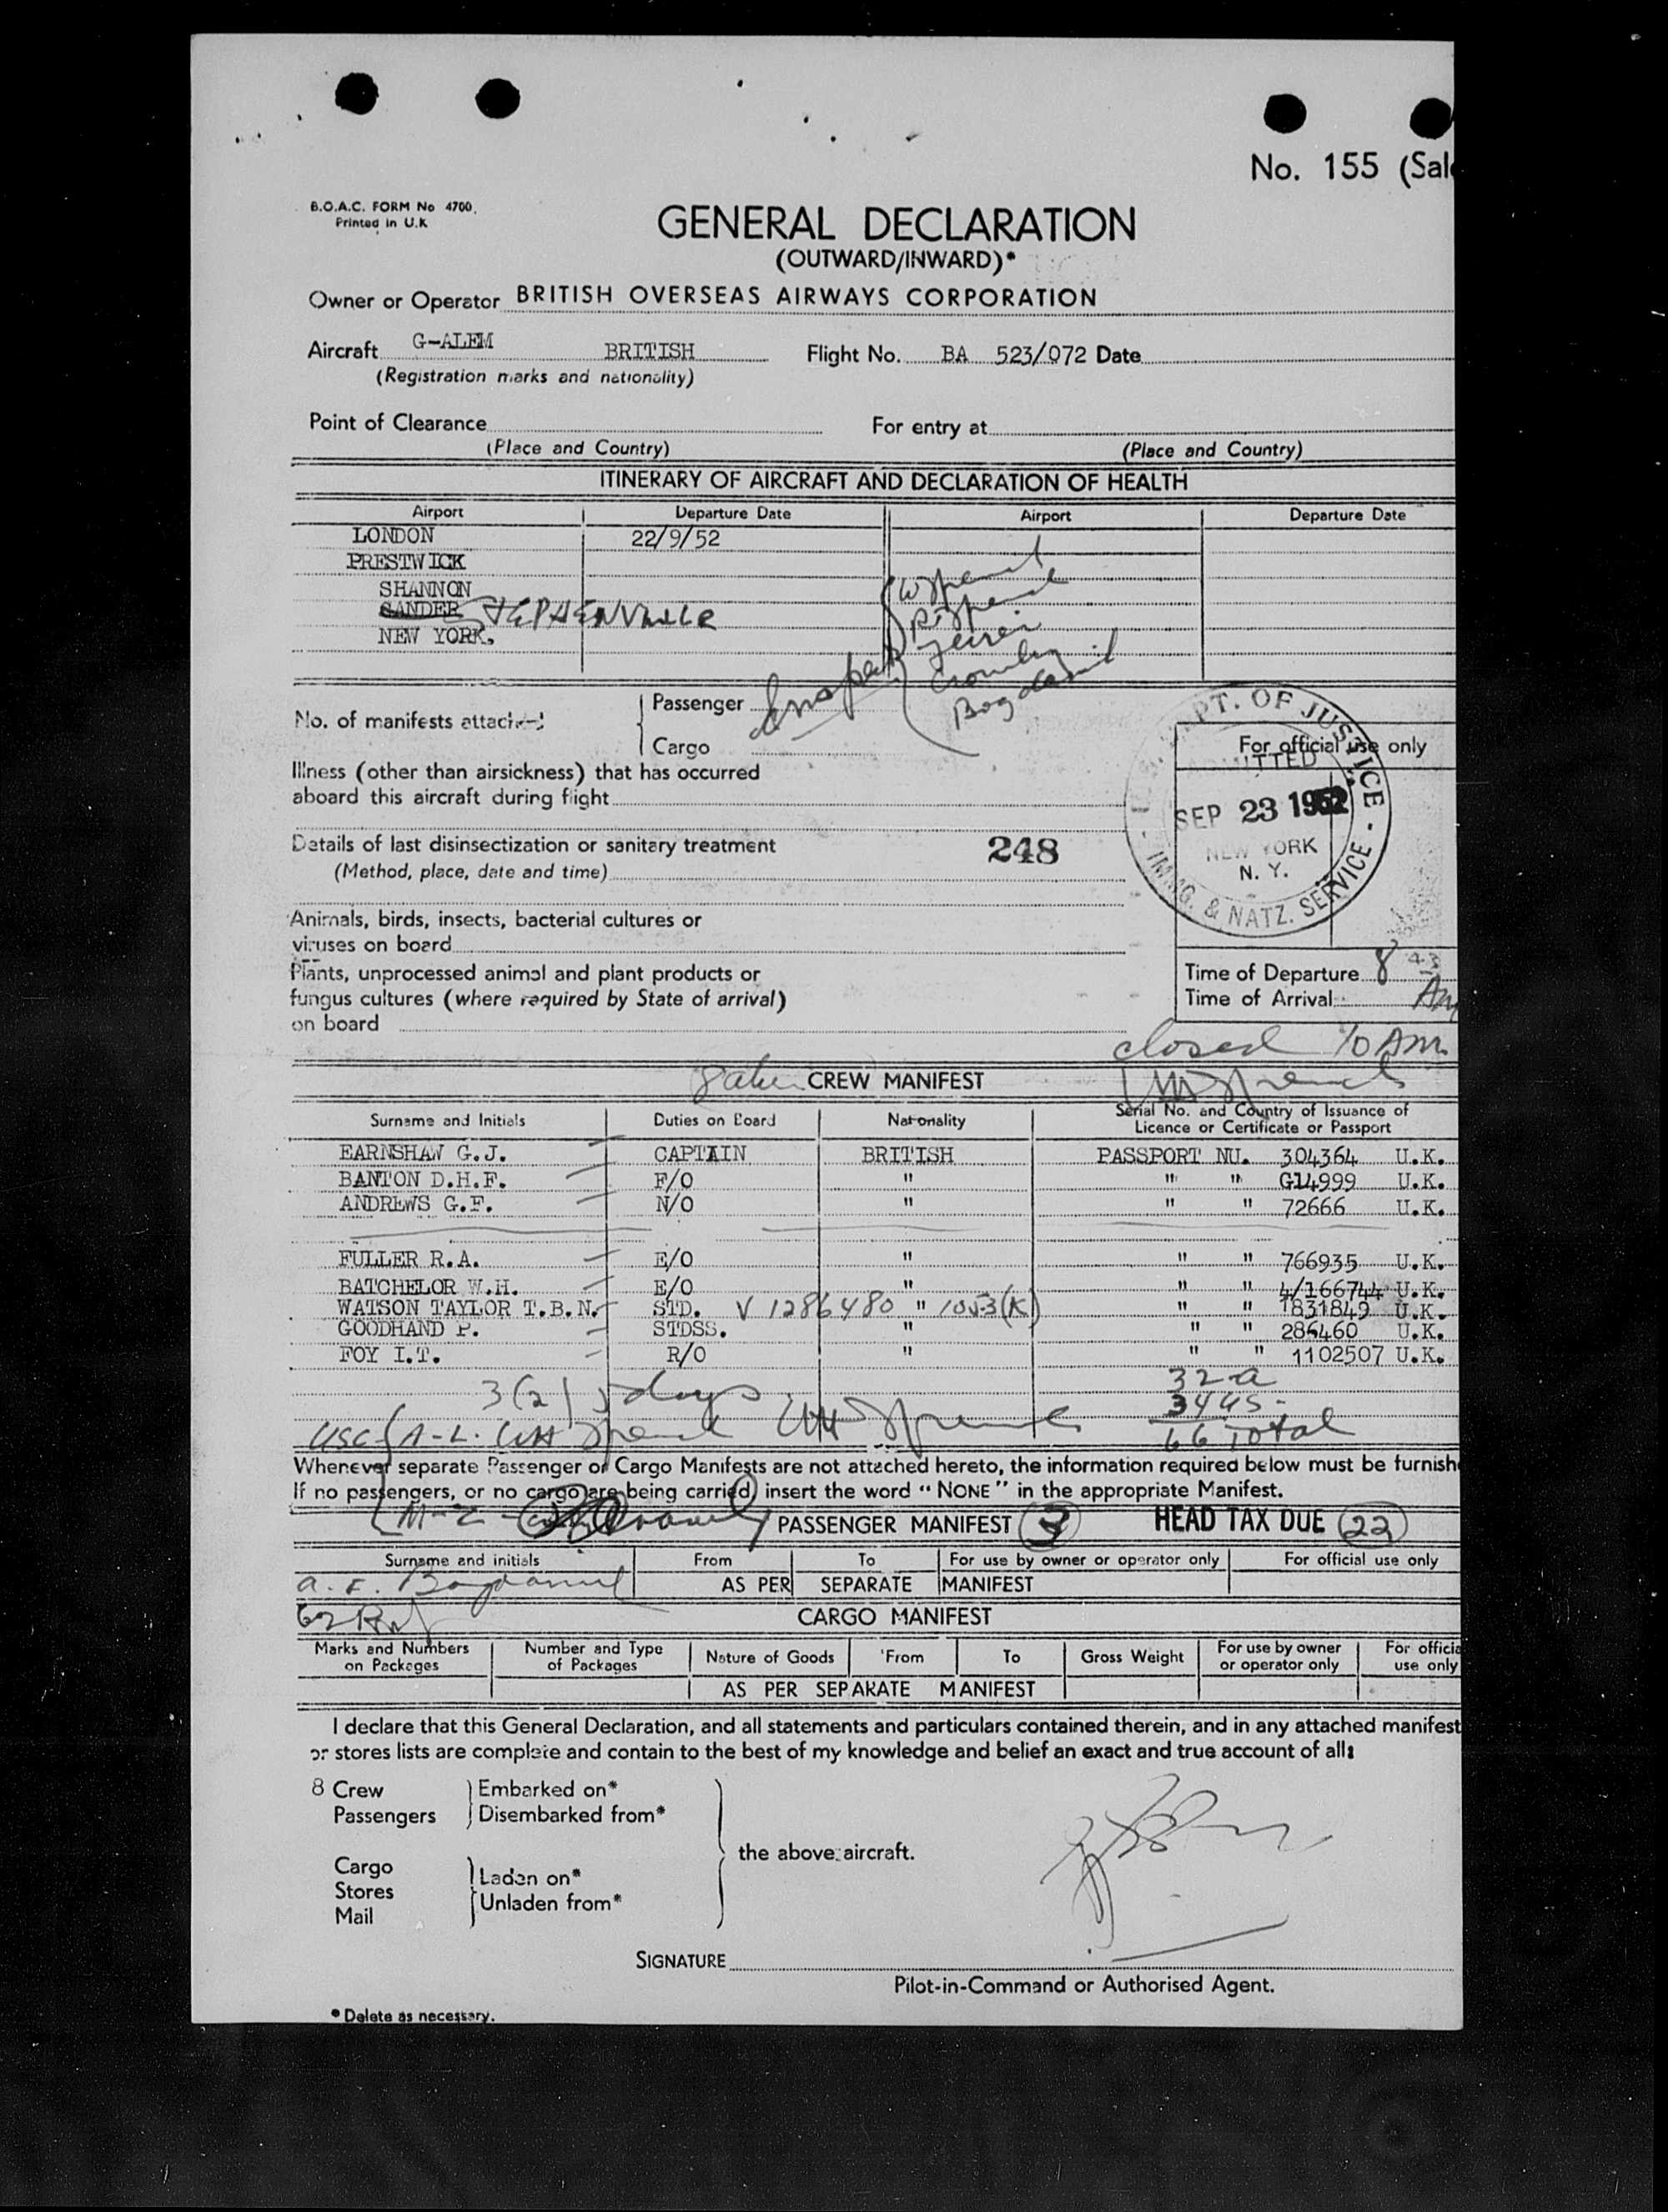 No. 155 (Sal
B.O.A.C. FORM No 4700.
Printed in U.K
GENERAL DECLARATION
(OUTWARD/INWARD)*
Owner or Operator BRITISH OVERSEAS AIRWAYS CORPORATION
Aircraft G-ALEM BRITISH Flight No. BA 523/072 Date
(Registration marks and nationality)
Point of Clearance For entry at
(Place and Country) (Place and Country)
ITINERARY OF AIRCRAFT AND DECLARATION OF HEALTH
Airport Departure Date Airport Departure Date
LONDON 22/9/52
PRESTWICK
SHANNON
GANDER STEPHENVILLE
NEW YORK.
No. of manifests attached Passenger
Cargo
For official use only
Illness (other than airsickness) that has occurred
aboard this aircraft during flight
DEPT. OF JUSTICE - IMMIG. & NATZ. SERVICE
ADMITTED
SEP 23 1952
NEW YORK
N. Y.
Details of last disinsectization or sanitary treatment 248
(Method, place, date and time)
Animals, birds, insects, bacterial cultures or
viruses on board
Plants, unprocessed animal and plant products or
fungus cultures (where required by State of arrival)
on board
Time of Departure 8 43
Time of Arrival Am
closed 10 Am
CREW MANIFEST
Surname and Initials Duties on Board Nationality Serial No. and Country of Issuance of
Licence or Certificate or Passport
EARNSHAW G.J. CAPTAIN BRITISH PASSPORT NU. 304364 U.K.
BANTON D.H.F. F/O " " " G14999 U.K.
ANDREWS G.F. N/O " " " 72666 U.K.
FULLER R.A. E/O " " " 766935 U.K.
BATCHELOR W.H. E/O " " " 4/166744 U.K.
WATSON TAYLOR T.B.N. STD. V 1286480 " 1053(K) " " 1831849 U.K.
GOODHAND P. STDSS. " " " 286460 U.K.
FOY I.T. R/O " " " 1102507 U.K.
3(2) 5 days
32 a
34 US-
66 Total
USC A-L.
Whenever separate Passenger or Cargo Manifests are not attached hereto, the information required below must be furnish
If no passengers, or no cargo are being carried, insert the word "NONE" in the appropriate Manifest.
M-Z
PASSENGER MANIFEST HEAD TAX DUE 22
Surname and initials From To For use by owner or operator only For official use only
AS PER SEPARATE MANIFEST
CARGO MANIFEST
Marks and Numbers on Packages Number and Type of Packages Nature of Goods From To Gross Weight For use by owner or operator only For officia use only
AS PER SEPARATE MANIFEST
I declare that this General Declaration, and all statements and particulars contained therein, and in any attached manifest
or stores lists are complete and contain to the best of my knowledge and belief an exact and true account of all:
8 Crew Embarked on*
Passengers Disembarked from*
the above aircraft.
Cargo Laden on*
Stores
Unladen from*
Mail
SIGNATURE
Pilot-in-Command or Authorised Agent.
* Delete as necessary.